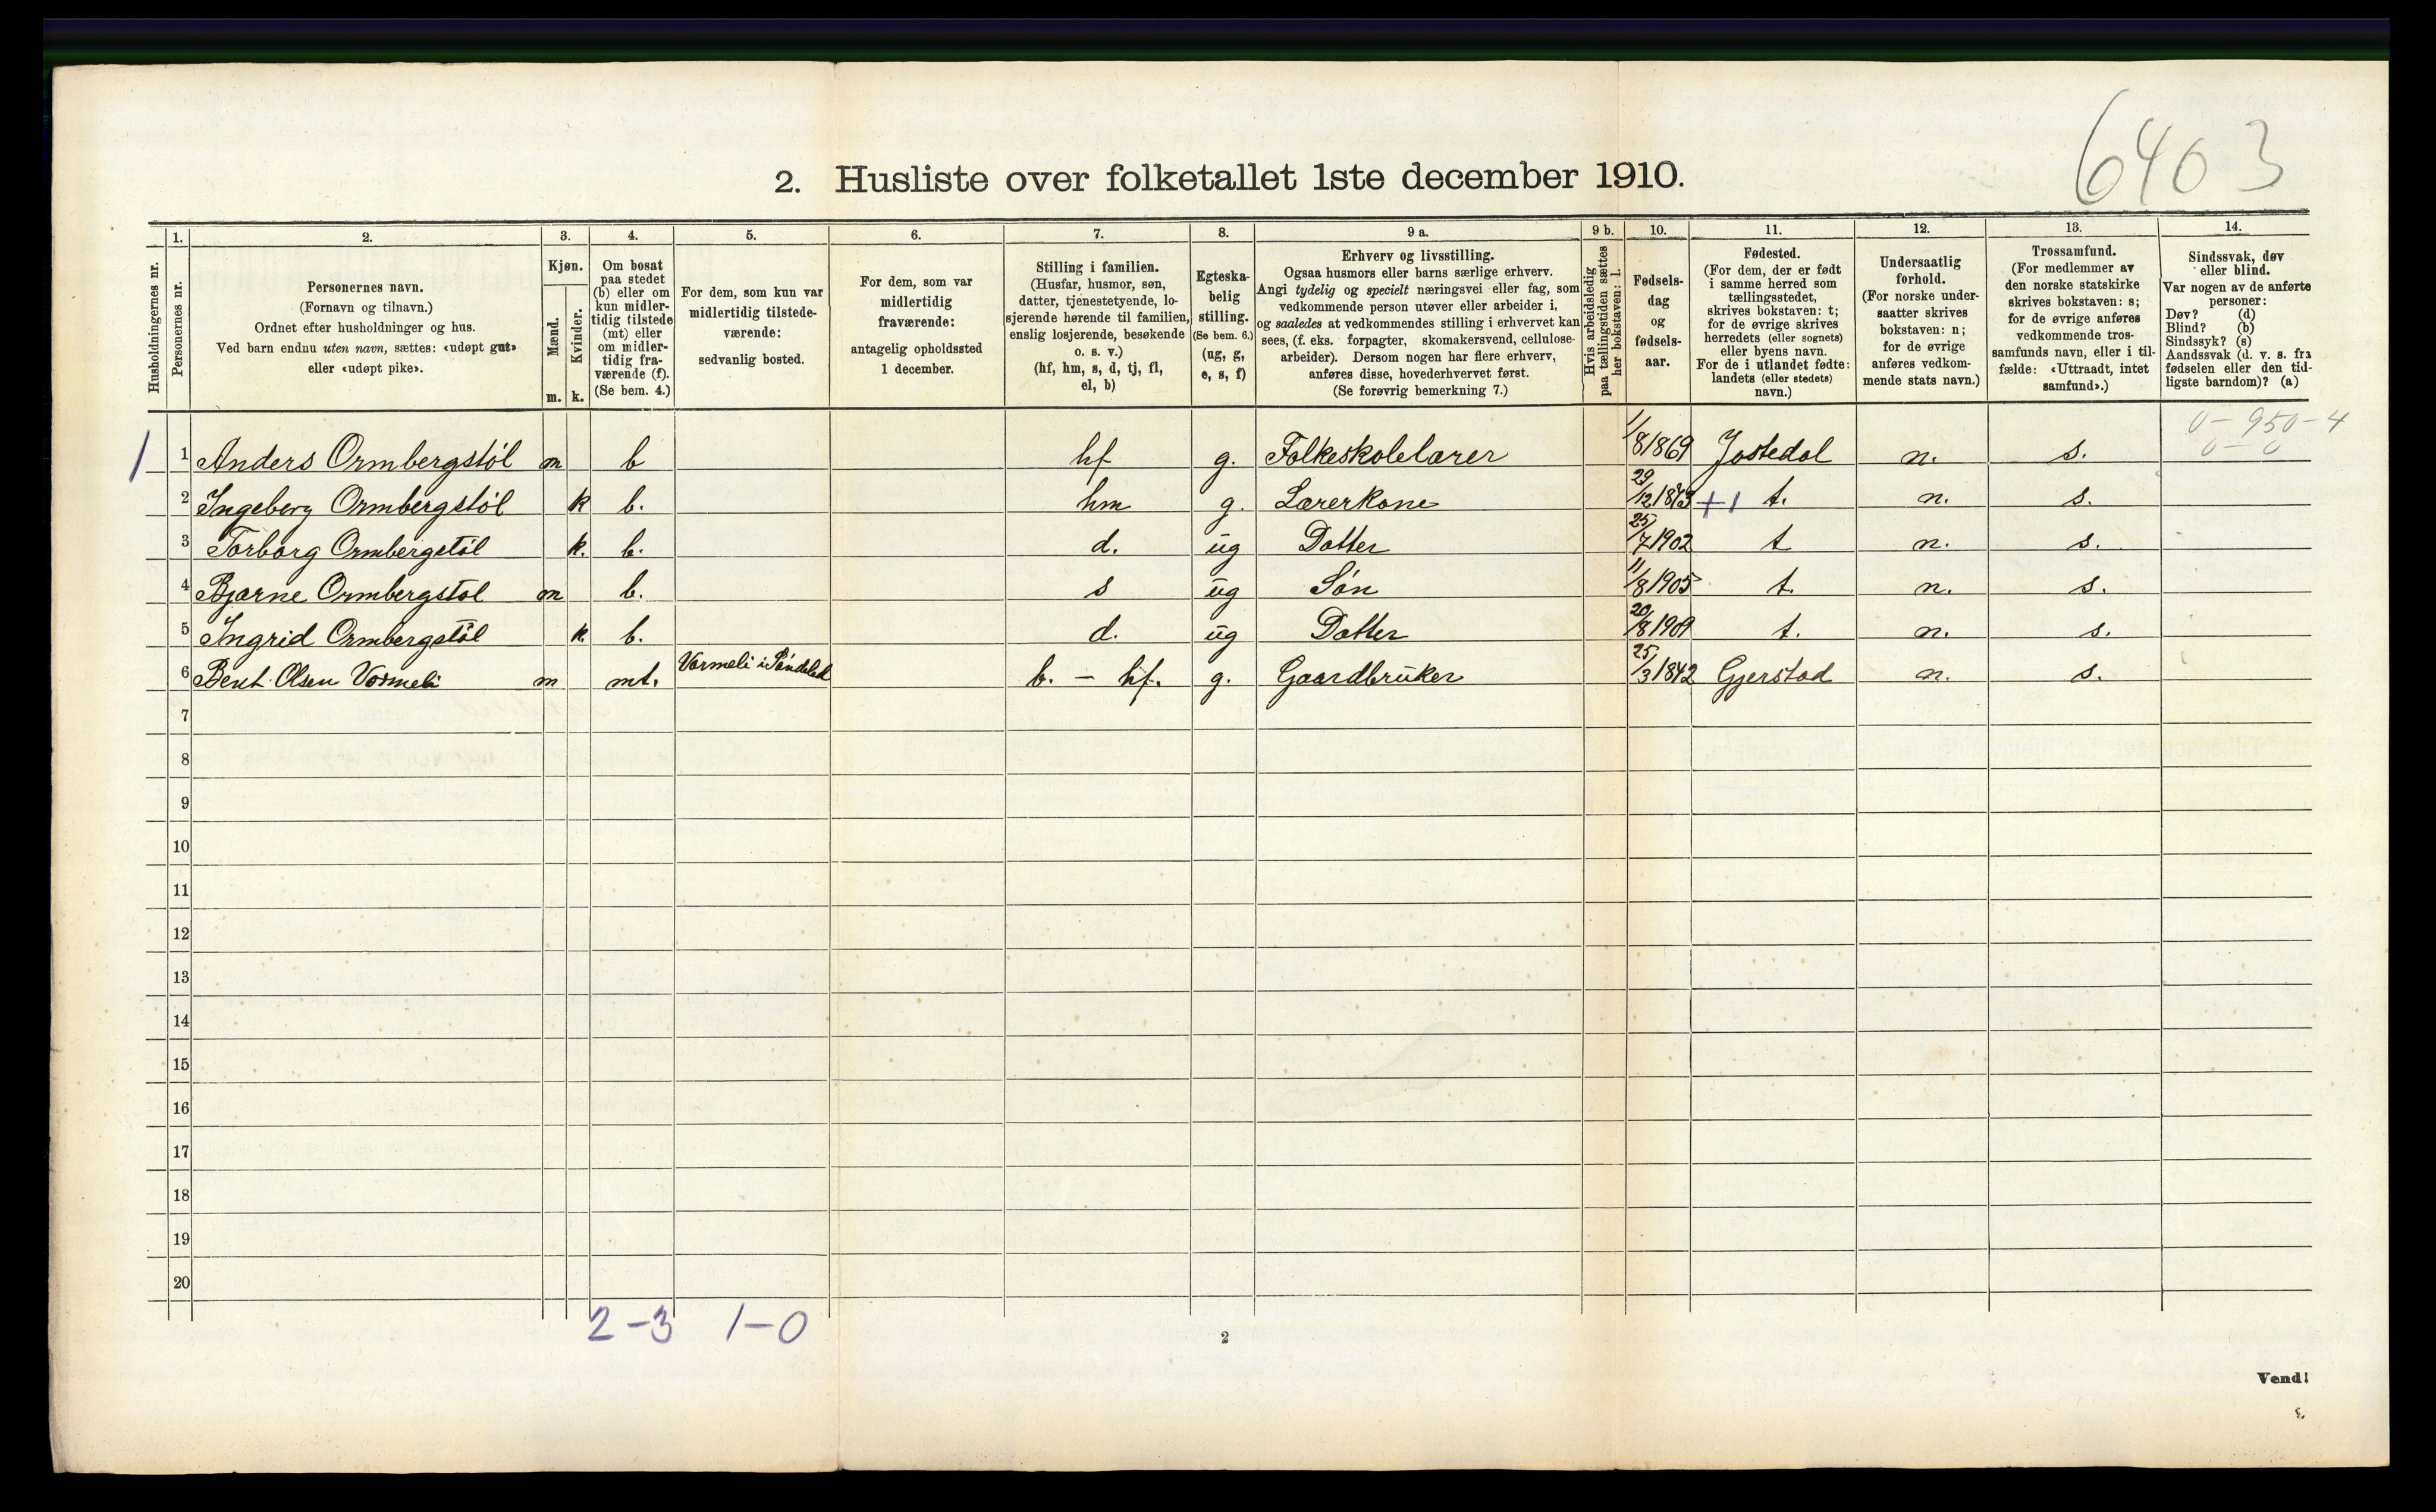 6403
2. Husliste over folketallet 1ste december 1910.
Husholdningernes nr.
1. Personernes nr.
2. Personernes navn.
(Fornavn og tilnavn.)
Ordnet efter husholdninger og hus.
Ved barn endnu uten navn, sættes: «udøpt gut»
eller «udøpt pike».
3. Kjøn.
Mænd. Kvinder.
m. k.
4. Om bosat
paa stedet
(b) eller om
kun midler-
tidig tilstede
(mt) eller
om midler-
tidig fra-
værende (f).
(Se bem. 4.)
5. For dem, som kun var
midlertidig tilstede-
værende:
sedvanlig bosted.
6. For dem, som var
midlertidig
fraværende:
antagelig opholdssted
1 december.
7. Stilling i familien.
(Husfar, husmor, søn,
datter, tjenestetyende, lo-
sjerende hørende til familien,
enslig losjerende, besøkende
o. s. v.)
(hf, hm, s, d, tj, fl,
el, b)
8. Egteska-
belig
stilling.
(Se bem. 6.)
(ug, g,
e, s, f)
9 a. Erhverv og livsstilling.
Ogsaa husmors eller barns særlige erhverv.
Angi tydelig og specielt næringsvei eller fag, som
vedkommende person utøver eller arbeider i,
og saaledes at vedkommendes stilling i erhvervet kan
sees, (f. eks. forpagter, skomakersvend, cellulose-
arbeider). Dersom nogen har flere erhverv,
anføres disse, hovederhvervet først.
(Se forøvrig bemerkning 7.)
9 b. Hvis arbeidsledig
paa tællingstiden sættes
her bokstaven: l.
10. Fødsels-
dag
og
fødsels-
aar.
11. Fødested.
(For dem, der er født
i samme herred som
tællingsstedet,
skrives bokstaven: t;
for de øvrige skrives
herredets (eller sognets)
eller byens navn.
For de i utlandet fødte:
landets (eller stedets)
navn.)
12. Undersaatlig
forhold.
(For norske under-
saatter skrives
bokstaven: n;
for de øvrige
anføres vedkom-
mende stats navn.)
13. Trossamfund.
(For medlemmer av
den norske statskirke
skrives bokstaven: s;
for de øvrige anføres
vedkommende tros-
samfunds navn, eller i til-
fælde: «Uttraadt, intet
samfund».)
14. Sindssvak, døv
eller blind.
Var nogen av de anførte
personer:
Døv? (d)
Blind? (b)
Sindssyk? (s)
Aandssvak (d. v. s. fra
fødselen eller den tid-
ligste barndom)? (a)
0-950-4
0-0
1 1 Anders Ormbergstøl m b hf g. Folkeskolelærer 1/8 1869 Jostedal n. s.
2 Ingeberg Ormbergstøl k b. hm g. Lærerkone 29/12 1873 +1 t. n. s.
3 Torborg Ormbergstøl k. b. d. ug Datter 25/7 1902 t n. s.
4 Bjarne Ormbergstøl m b. s ug Søn 11/8 1905 t. n. s.
5 Ingrid Ormbergstøl k. b. d. ug Datter 20/8 1909 t. n. s.
6 Bent Olsen Vormeli m mt. Vormeli i Søndeled b. - hf. g. Gaardbruker 25/3 1842 Gjerstad n. s.
7
8
9
10
11
12
13
14
15
16
17
18
19
20
2-3 1-0
2
Vend!